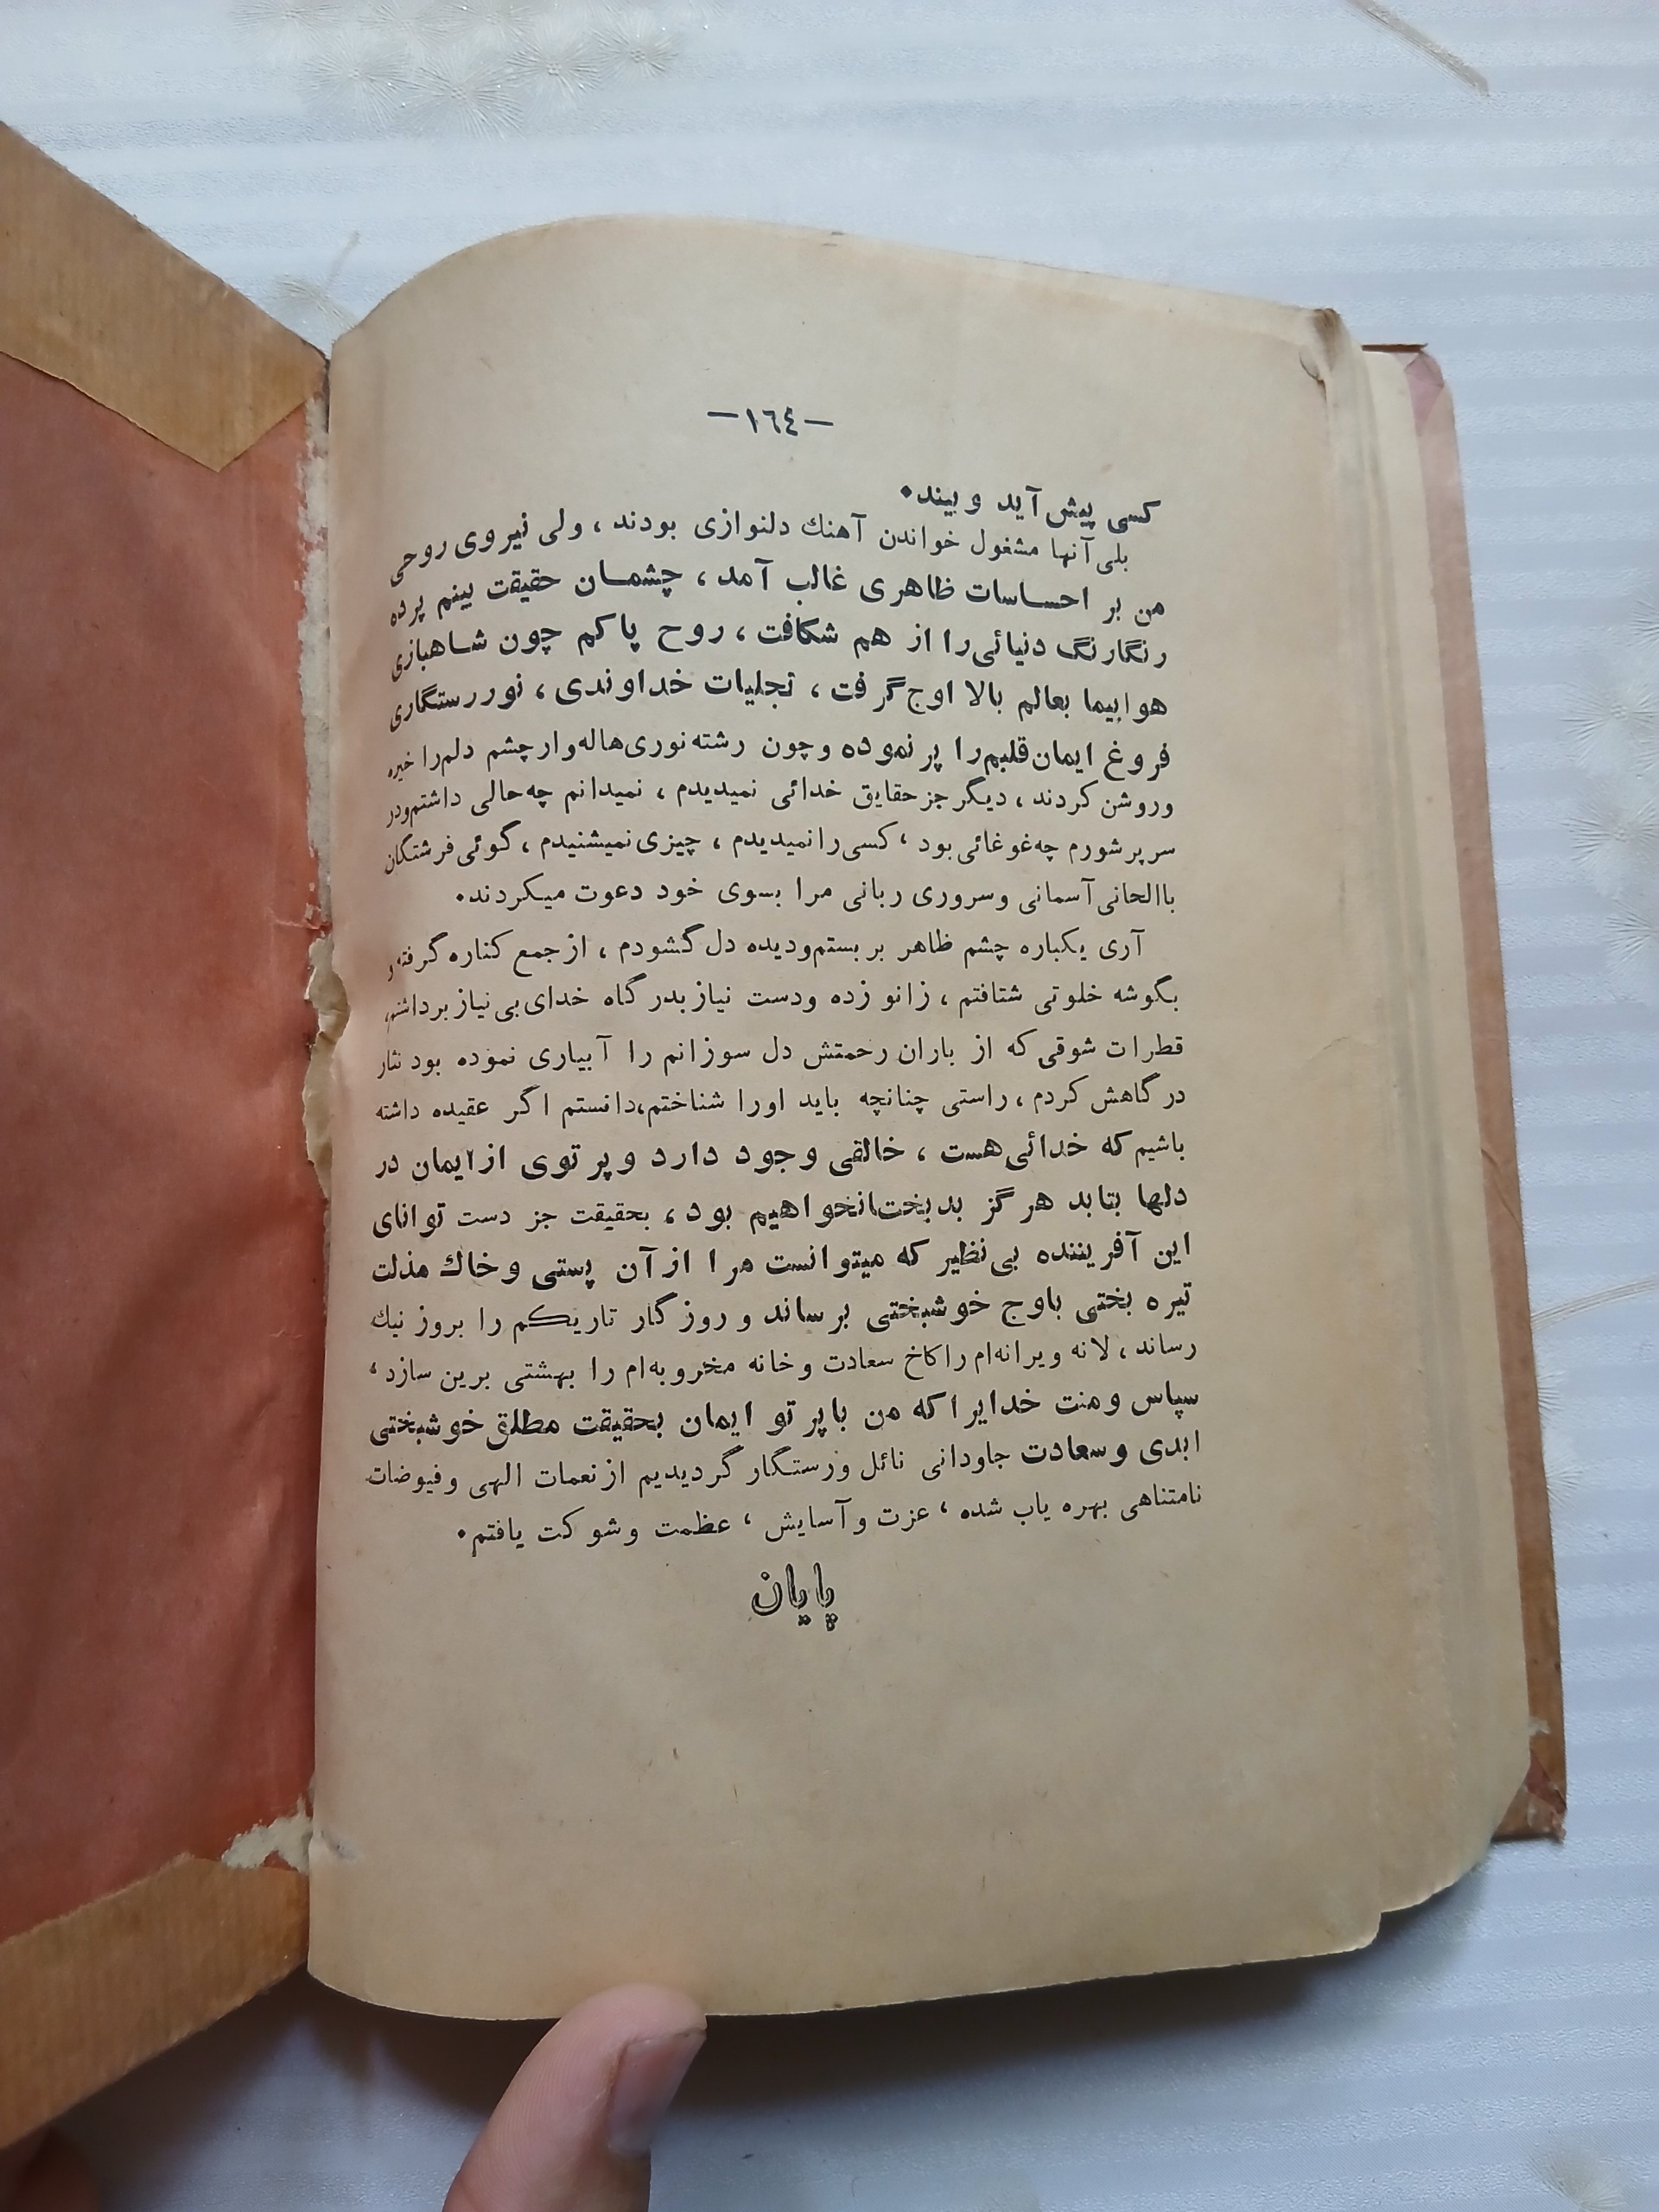 —١٦٤—
کسی پیش آید و بیند.
بلی آنها مشغول خواندن آهنك دلنوازی بودند ، ولی نیروی روحی
من بر احساسات ظاهری غالب آمد ، چشمان حقیقت بینم پرده
رنگارنگ دنیائی را از هم شکافت ، روح پاکم چون شاهبازی
هوا پیما بعالم بالا اوج گرفت ، تجلیات خداوندی ، نور رستگاری
فروغ ایمان قلبم را پر نموده و چون رشته نوری هاله وار چشم دلم را خیره
وروشن کردند ، دیگر جز حقایق خدائی نمیدیدم ، نمیدانم چه حالی داشتم ودر
سر پر شورم چه غوغائی بود ، کسی را نمیدیدم ، چیزی نمیشنیدم ، گوئی فرشتگان
باالحانی آسمانی وسروری ربانی مرا بسوی خود دعوت میکردند.
آری یکباره چشم ظاهر بر بستم ودیده دل گشودم ، از جمع کناره گرفته و
بگوشه خلوتی شتافتم ، زانو زده ودست نیاز بدرگاه خدای بی نیاز برداشتم،
قطرات شوقی که از باران رحمتش دل سوزانم را آبیاری نموده بود نثار
درگاهش کردم ، راستی چنانچه باید اورا شناختم،دانستم اگر عقیده داشته
باشیم که خدائی هست ، خالقی وجود دارد وپرتوی از ایمان در
دلها بتابد هرگز بدبخت نخواهیم بود ، بحقیقت جز دست توانای
این آفریننده بی نظیر که میتوانست مرا از آن پستی و خاك مذلت
تیره بختی باوج خوشبختی برساند و روزگار تاریکم را بروز نیك
رساند ، لانه ویرانه‌ام را کاخ سعادت و خانه مخروبه‌ام را بهشتی برین سازد ،
سپاس ومنت خدایرا که من باپرتو ایمان بحقیقت مطلق خوشبختی
ابدی وسعادت جاودانی نائل ورستگار گردیدیم از نعمات الهی و فیوضات
نامتناهی بهره یاب شده ، عزت و آسایش ، عظمت وشوکت یافتم.
پایان